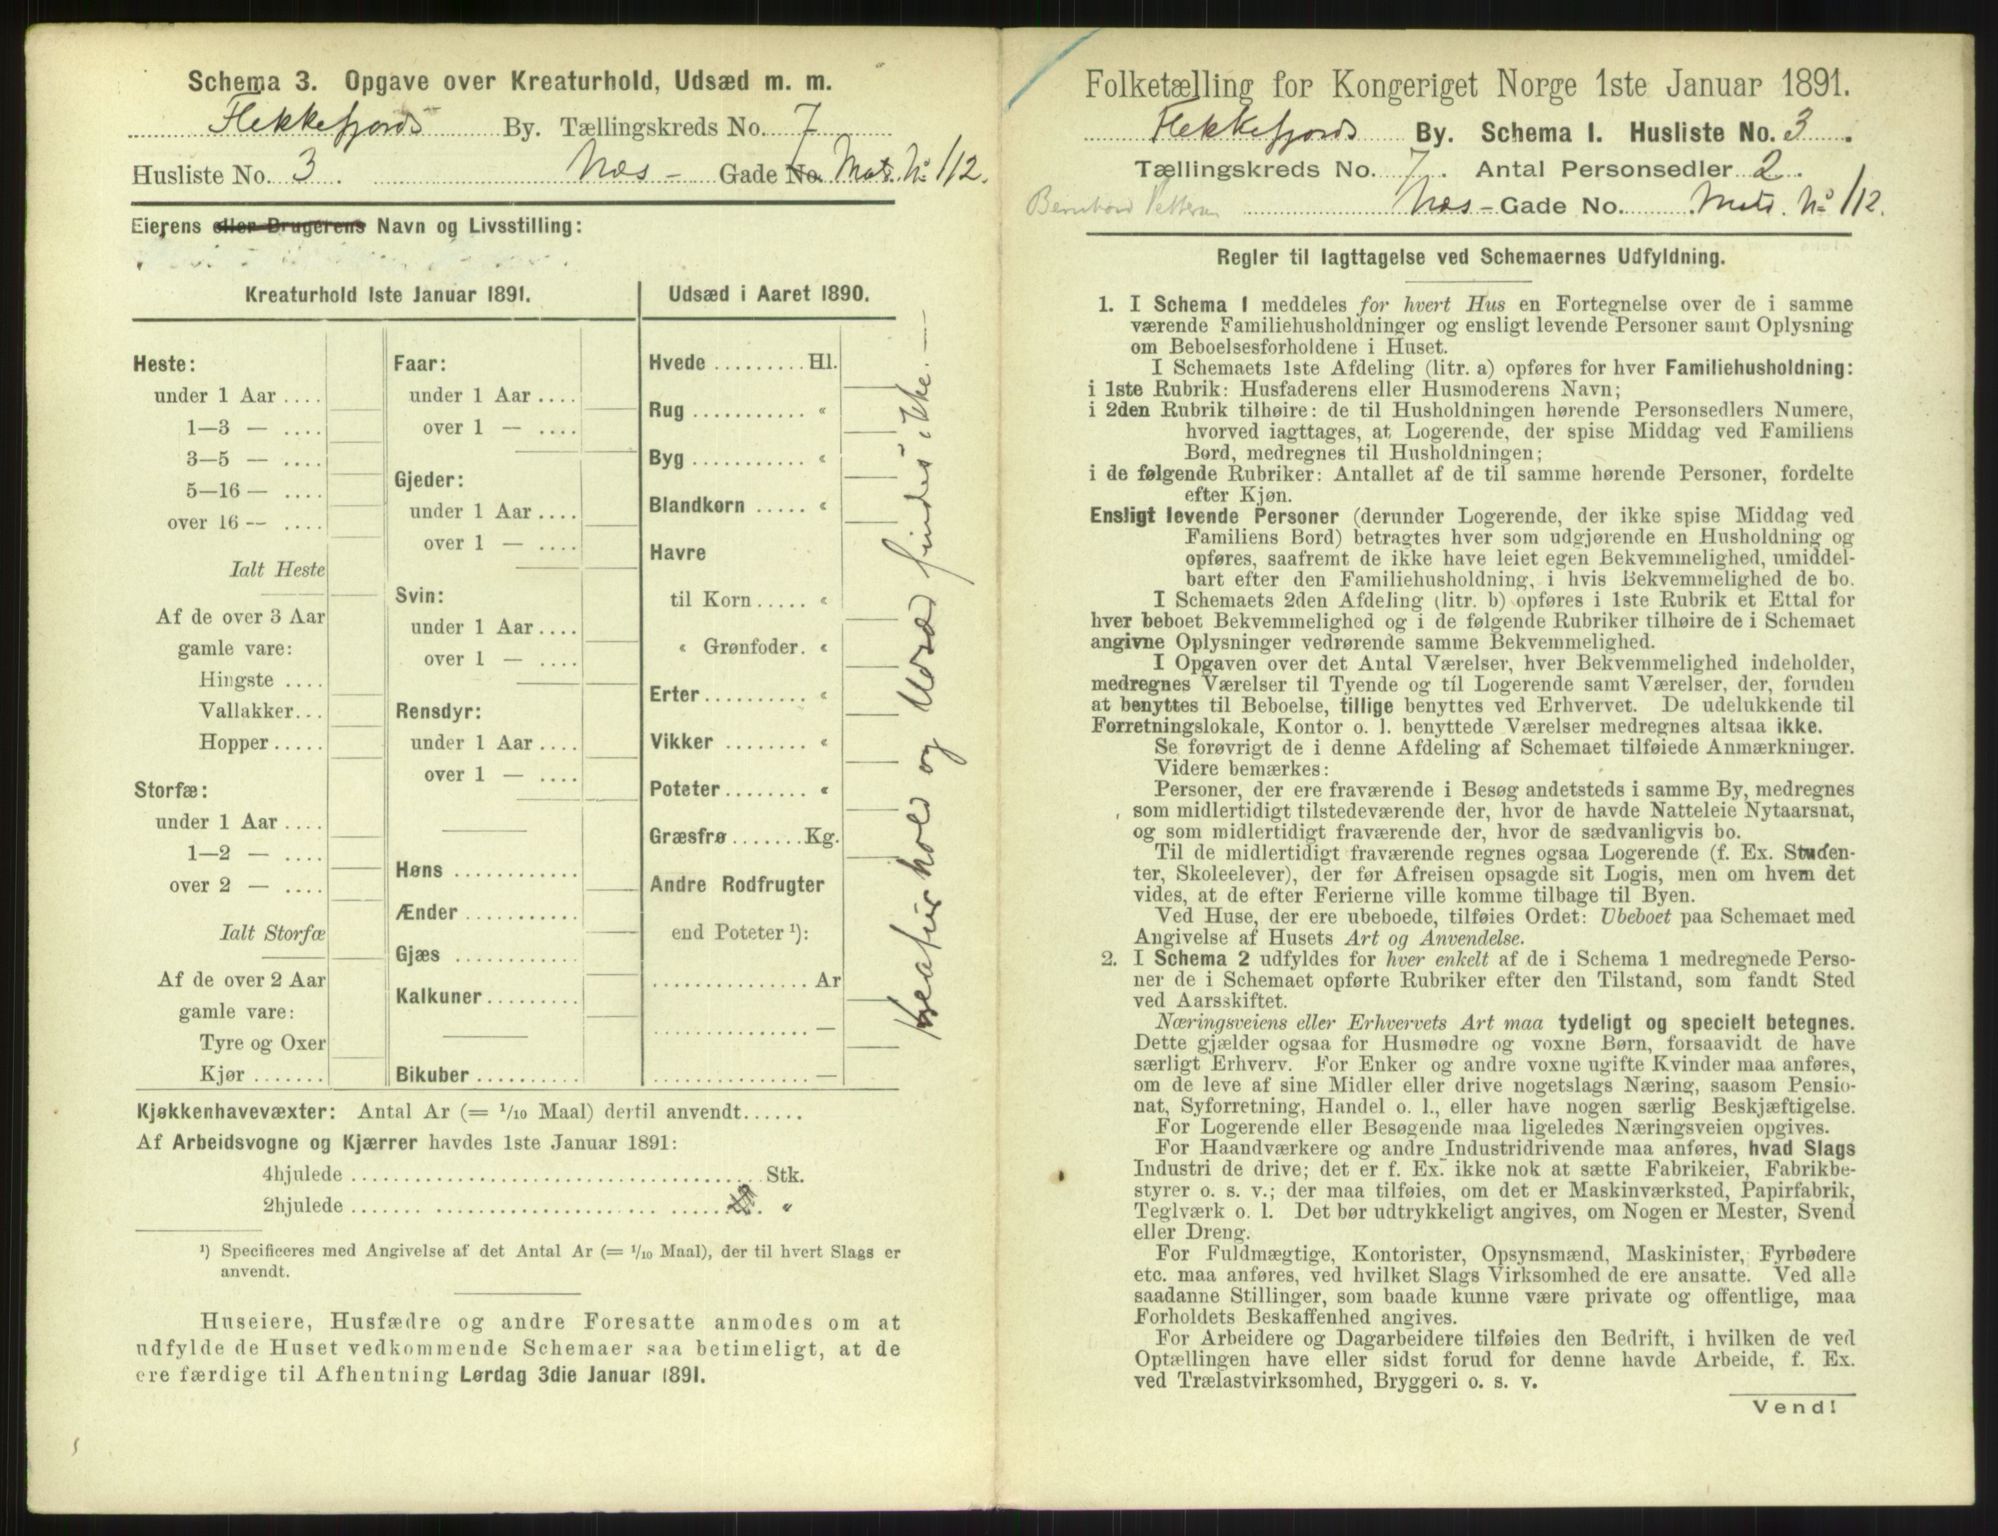 Schema 3. Opgave over Kreaturhold, Udsæd m. m.
Flekkefjords By. Tællingskreds No. 7
Husliste No. 3 Næs - Gade No. Mat. No 112.
Eierens eller Brugerens Navn og Livsstilling:
Kreaturhold 1ste Januar 1891.
Heste:
under 1 Aar ....
1—3 — ....
3—5 — ....
5—16 — ....
over 16 — ....
Ialt Heste
Af de over 3 Aar
gamle vare:
Hingste ....
Vallakker...
Hopper .....
Storfæ:
under 1 Aar ....
1—2 — ....
over 2 — ....
Ialt Storfæ
Af de over 2 Aar
gamle vare:
Tyre og Oxer
Kjør .......
Faar:
under 1 Aar ....
over 1 — ....
Gjeder:
under 1 Aar ....
over 1 — ....
Svin:
under 1 Aar ....
over 1 — ....
Rensdyr:
under 1 Aar ....
over 1 — ....
Høns ............
Ænder ...........
Gjæs ............
Kalkuner.........
Bikuber ..........
Udsæd i Aaret 1890.
Hvede ......... Hl.
Rug ........... "
Byg ........... "
Blandkorn ..... "
Havre
til Korn ..... "
" Grønfoder. "
Erter .......... "
Vikker ........ "
Poteter ........ "
Græsfrø ....... Kg.
Andre Rodfrugter
end Poteter ¹):
............... Ar
............... —
............... —
Kreaturhold og Udsæd findes ikke. —
Kjøkkenhavevæxter: Antal Ar (= 1/10 Maal) dertil anvendt......
Af Arbeidsvogne og Kjærrer havdes 1ste Januar 1891:
4hjulede ........................................ Stk.
2hjulede ........................................ "
¹) Specificeres med Angivelse af det Antal Ar (= 1/10 Maal), der til hvert Slags er
anvendt.
Huseiere, Husfædre og andre Foresatte anmodes om at
udfylde de Huset vedkommende Schemaer saa betimeligt, at de
ere færdige til Afhentning Lørdag 3die Januar 1891.
Folketælling for Kongeriget Norge 1ste Januar 1891.
Flekkefjords By. Schema 1. Husliste No. 3.
Tællingskreds No. 7. Antal Personsedler 2.
Næs - Gade No. Mat. No 112.
Regler til Iagttagelse ved Schemaernes Udfyldning.
1. I Schema 1 meddeles for hvert Hus en Fortegnelse over de i samme
værende Familiehusholdninger og ensligt levende Personer samt Oplysning
om Beboelsesforholdene i Huset.
I Schemaets 1ste Afdeling (litr. a) opføres for hver Familiehusholdning:
i 1ste Rubrik: Husfaderens eller Husmoderens Navn;
i 2den Rubrik tilhøire: de til Husholdningen hørende Personsedlers Numere,
hvorved iagttages, at Logerende, der spise Middag ved Familiens
Bord, medregnes til Husholdningen;
i de følgende Rubriker: Antallet af de til samme hørende Personer, fordelte
efter Kjøn.
Ensligt levende Personer (derunder Logerende, der ikke spise Middag ved
Familiens Bord) betragtes hver som udgjørende en Husholdning og
opføres, saafremt de ikke have leiet egen Bekvemmelighed, umiddel-
bart efter den Familiehusholdning, i hvis Bekvemmelighed de bo.
I Schemaets 2den Afdeling (litr. b) opføres i 1ste Rubrik et Ettal for
hver beboet Bekvemmelighed og i de følgende Rubriker tilhøire de i Schemaet
angivne Oplysninger vedrørende samme Bekvemmelighed.
I Opgaven over det Antal Værelser, hver Bekvemmelighed indeholder,
medregnes Værelser til Tyende og til Logerende samt Værelser, der, foruden
at benyttes til Beboelse, tillige benyttes ved Erhvervet. De udelukkende til
Forretningslokale, Kontor o. l. benyttede Værelser medregnes altsaa ikke.
Se forøvrigt de i denne Afdeling af Schemaet tilføiede Anmærkninger.
Videre bemærkes:
Personer, der ere fraværende i Besøg andetsteds i samme By, medregnes
som midlertidigt tilstedeværende der, hvor de havde Natteleie Nytaarsnat,
og som midlertidigt fraværende der, hvor de sædvanligvis bo.
Til de midlertidigt fraværende regnes ogsaa Logerende (f. Ex. Studen-
ter, Skoleelever), der før Afreisen opsagde sit Logis, men om hvem det
vides, at de efter Ferierne ville komme tilbage til Byen.
Ved Huse, der ere ubeboede, tilføies Ordet: Ubeboet paa Schemaet med
Angivelse af Husets Art og Anvendelse.
2. I Schema 2 udfyldes for hver enkelt af de i Schema 1 medregnede Perso-
ner de i Schemaet opførte Rubriker efter den Tilstand, som fandt Sted
ved Aarsskiftet.
Næringsveiens eller Erhvervets Art maa tydeligt og specielt betegnes.
Dette gjælder ogsaa for Husmødre og voxne Børn, forsaavidt de have
særligt Erhverv. For Enker og andre voxne ugifte Kvinder maa anføres,
om de leve af sine Midler eller drive nogetslags Næring, saasom Pensio-
nat, Syforretning, Handel o. l., eller have nogen særlig Beskjæftigelse.
For Logerende eller Besøgende maa ligeledes Næringsveien opgives.
For Haandværkere og andre Industridrivende maa anføres, hvad Slags
Industri de drive; det er f. Ex. ikke nok at sætte Fabrikeier, Fabrikbe-
styrer o. s. v.; der maa tilføies, om det er Maskinværksted, Papirfabrik,
Teglværk o. l. Det bør udtrykkeligt angives, om Nogen er Mester, Svend
eller Dreng.
For Fuldmægtige, Kontorister, Opsynsmænd, Maskinister, Fyrbødere
etc. maa anføres, ved hvilket Slags Virksomhed de ere ansatte. Ved alle
saadanne Stillinger, som baade kunne være private og offentlige, maa
Forholdets Beskaffenhed angives.
For Arbeidere og Dagarbeidere tilføies den Bedrift, i hvilken de ved
Optællingen have eller sidst forud for denne havde Arbeide, f. Ex.
ved Trælastvirksomhed, Bryggeri o. s. v.
Vend!